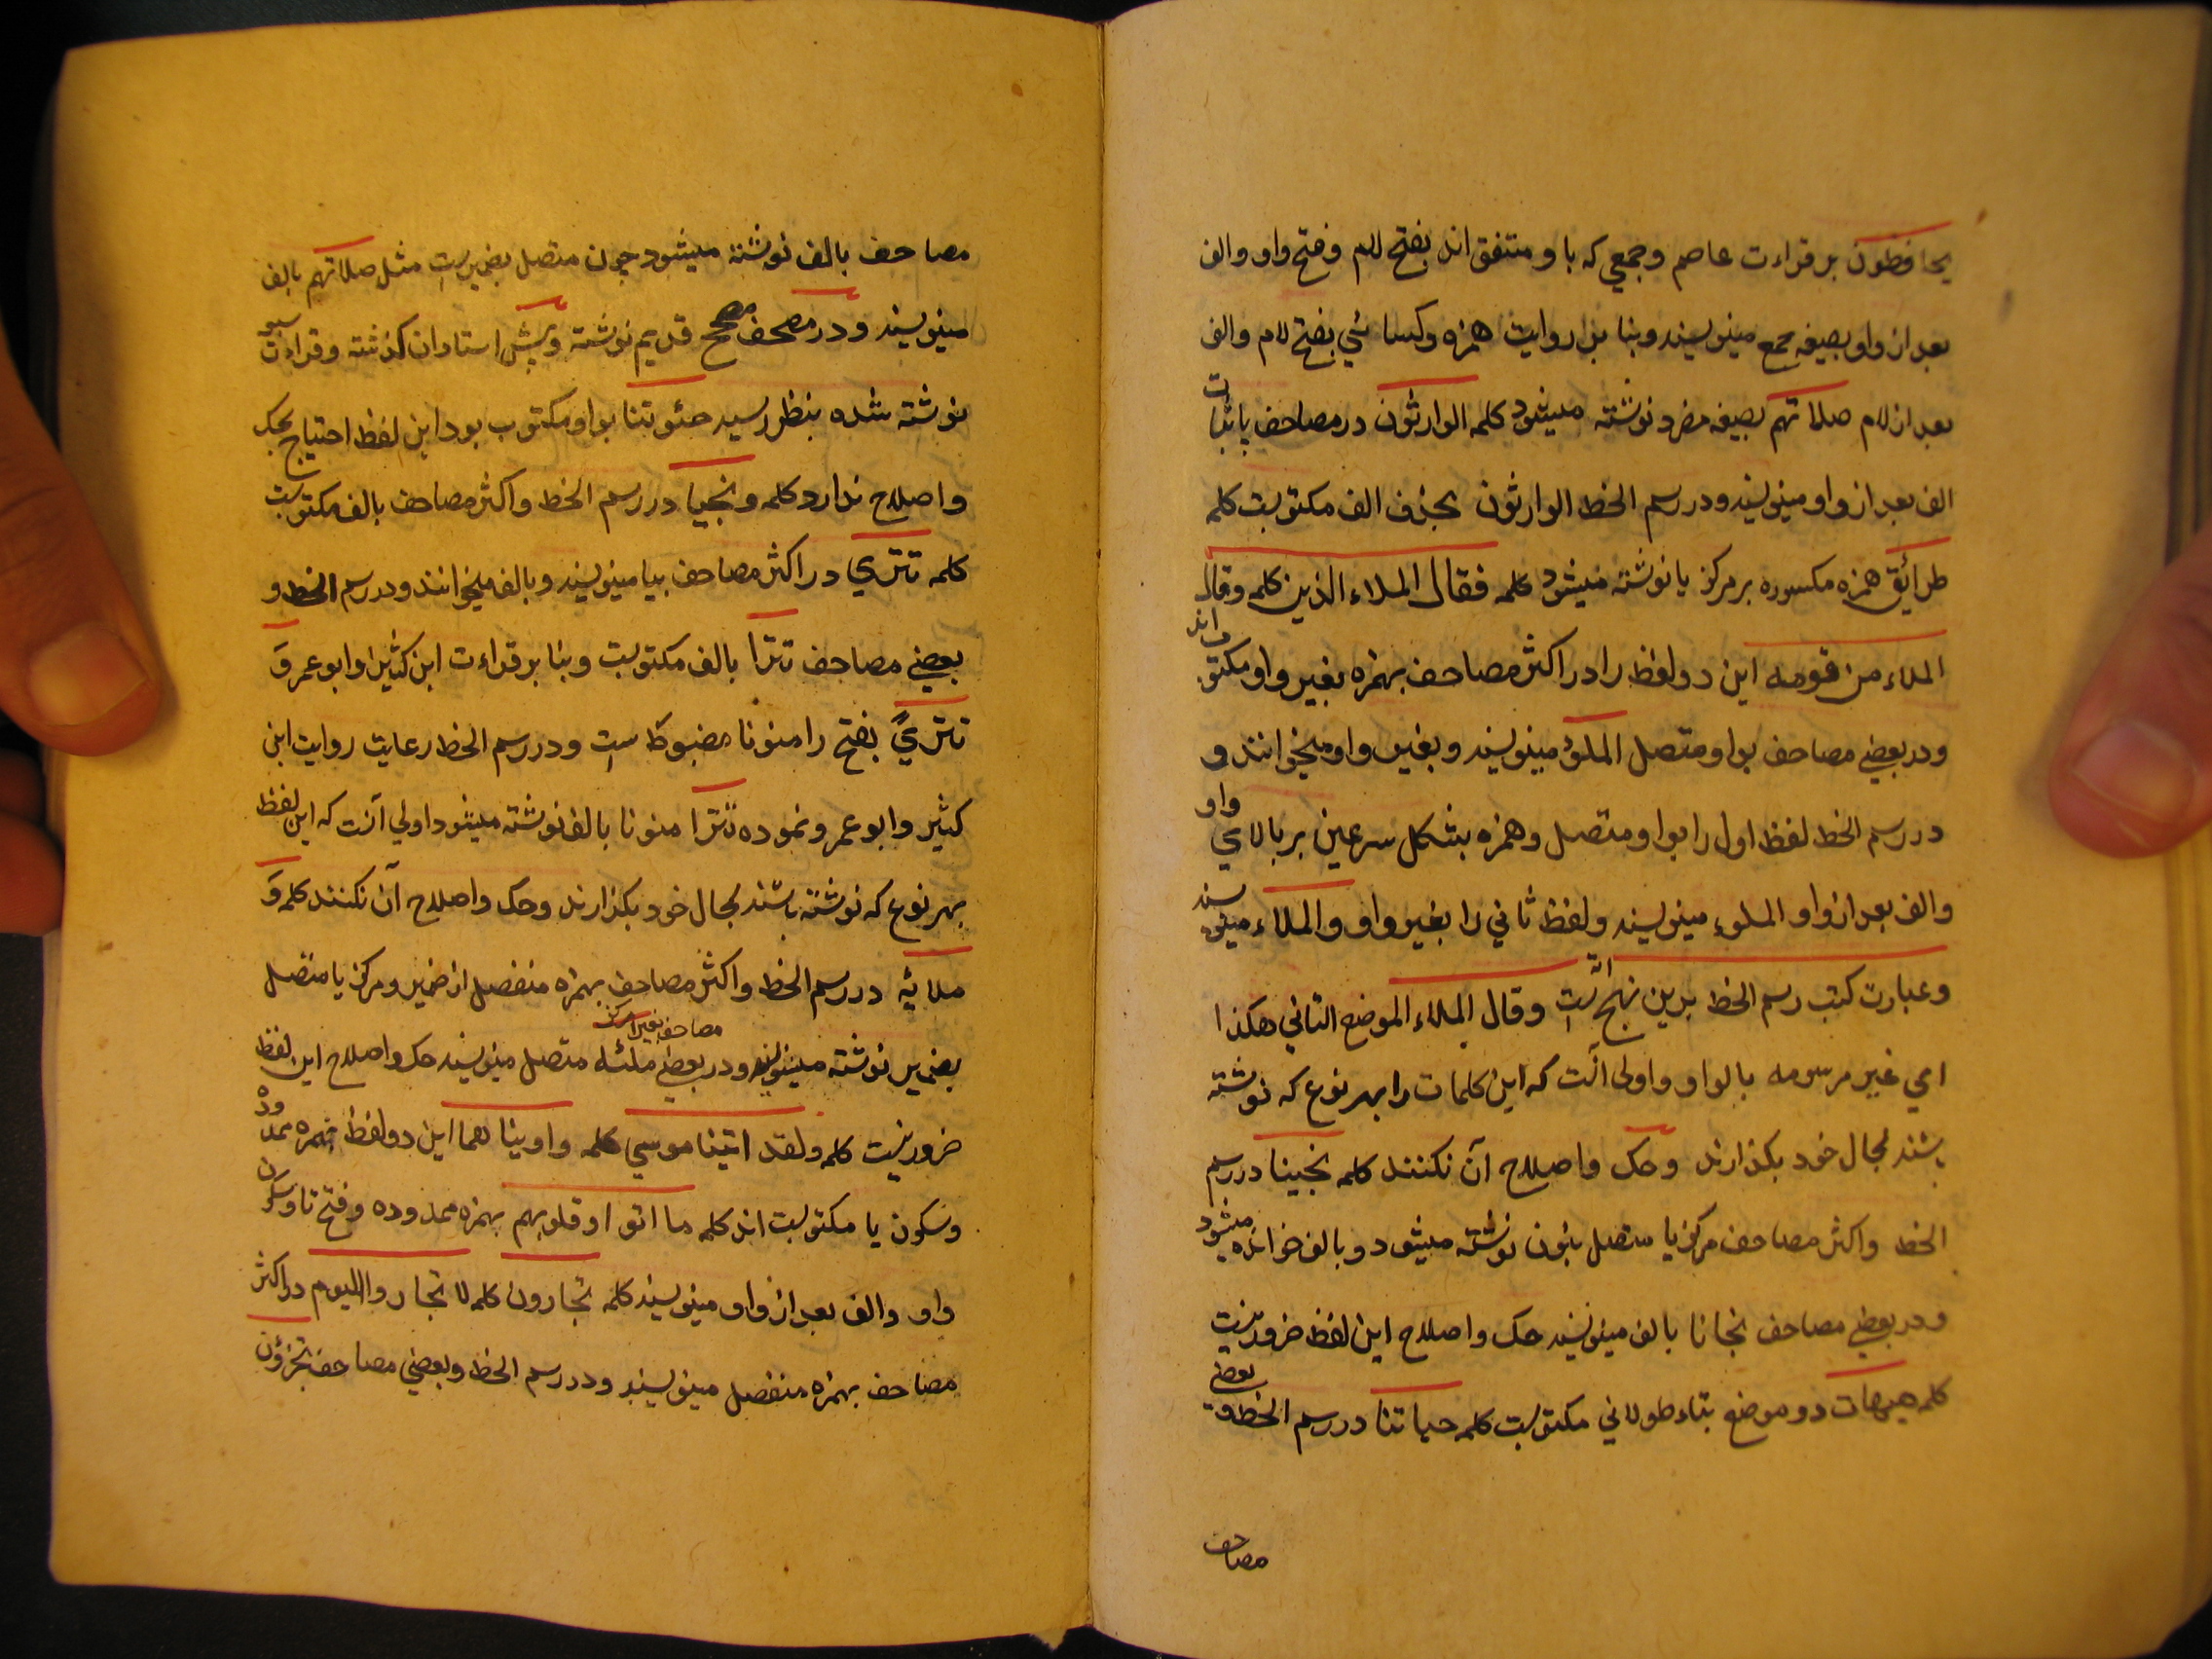 يحافظون بر قراءت عاصم وجمعي كه با و متفق اند بفتح لام و فتح واو والف
بعد از واو بصيغه جمع مينويسند و بنا بر روايت حمزه و كسائي بفتح لام والف
بعد از لام صلاتهم بصيغه مفرد نوشته ميشود كلمه الوارثون در مصاحف باثبات
الف بعد از واو مينويسند و در رسم الخط الوارثون بحذف الف مكتوبست كلمه
طرائق همزه مكسوره بر مركز يا نوشته ميشود كلمه فقال الملاء الذين كلمه وقال
الملاء من قومه اين دو لفظ را در اكثر مصاحف بهمزه بغير واو مكتوب اند
و در بعضي مصاحف بواو متصل الملؤ مينويسند و بغير واو ميخوانند و
در رسم الخط لفظ اول را بواو متصل و همزه بشكل سر عين بر بالاي واو
والف بعد از واو الملوء مينويسند و لفظ ثاني را بغير واو والملاء مينويسند
وعبارت كتب رسم الخط برين نهج است وقال الملاء الموضع الثاني هكذا
اي غير مرسومه بالواو و اولى آنست كه اين كلمات را بهر نوع كه نوشته
بشند بحال خود بكذارند وحك واصلاح آن نكنند كلمه نجينا در رسم
الخط و اكثر مصاحف مركز يا متصل بنون نوشته ميشود و بالف خوانده ميشود
و در بعضي مصاحف نجانا بالف مينويسند حك واصلاح اين لفظ ضرور نيست
كلمه هيهات دو موضع بتاء طولاني مكتوبست كلمه حياتنا در رسم الخط و بعضي
مصاحف
مصاحف بالف نوشته ميشود چون متصل بضميرست مثل صلاتهم بالف
مينويسند و در مصحف مصحح قديم نوشته و پيش استادان كذشته و قراءت
نوشته شده بنظر رسيد حئوتنا بواو مكتوب بود اين لفظ احتياج بحك
و اصلاح ندارد كلمه ونحيا در رسم الخط و اكثر مصاحف بالف مكتوبست
كلمه تتري در اكثر مصاحف بيا مينويسند و بالف ميخوانند و در رسم الخط و
بعضي مصاحف تترا بالف مكتوبست و بنا بر قراءت ابن كثير و ابو عمرو
تتريً بفتح را منونا مضبوط است و در رسم الخط رعايت روايت ابن
كثير و ابو عمرو نموده تترًا منونا بالف نوشته ميشود اولي آنست كه اين لفظ
بهر نوع كه نوشته باشند بحال خود بكذارند وحك واصلاح آن نكنند كلمه وَ
ملائه در رسم الخط و اكثر مصاحف بهمزه منفصل از ضمير و مركز يا متصل
بضمير نوشته مينويسند و در بعضي مصاحف بغير مركز ملئه متصل مينويسند حك واصلاح اين لفظ
ضرور نيست كلمه ولقد اتينا موسي كلمه واوينا هما اين دو لفظ بهمزه ممدوده
وسكون يا مكتوبست اند كلمه ما اتوا وقلوبهم بهمزه ممدوده و فتح تا و سكون
واو والف بعد از واو مينويسند كلمه تجارون كلمه لا تجاروا اليوم در اكثر
مصاحف بهمزه منفصل مينويسند و در رسم الخط و بعضي مصاحف تجرؤن